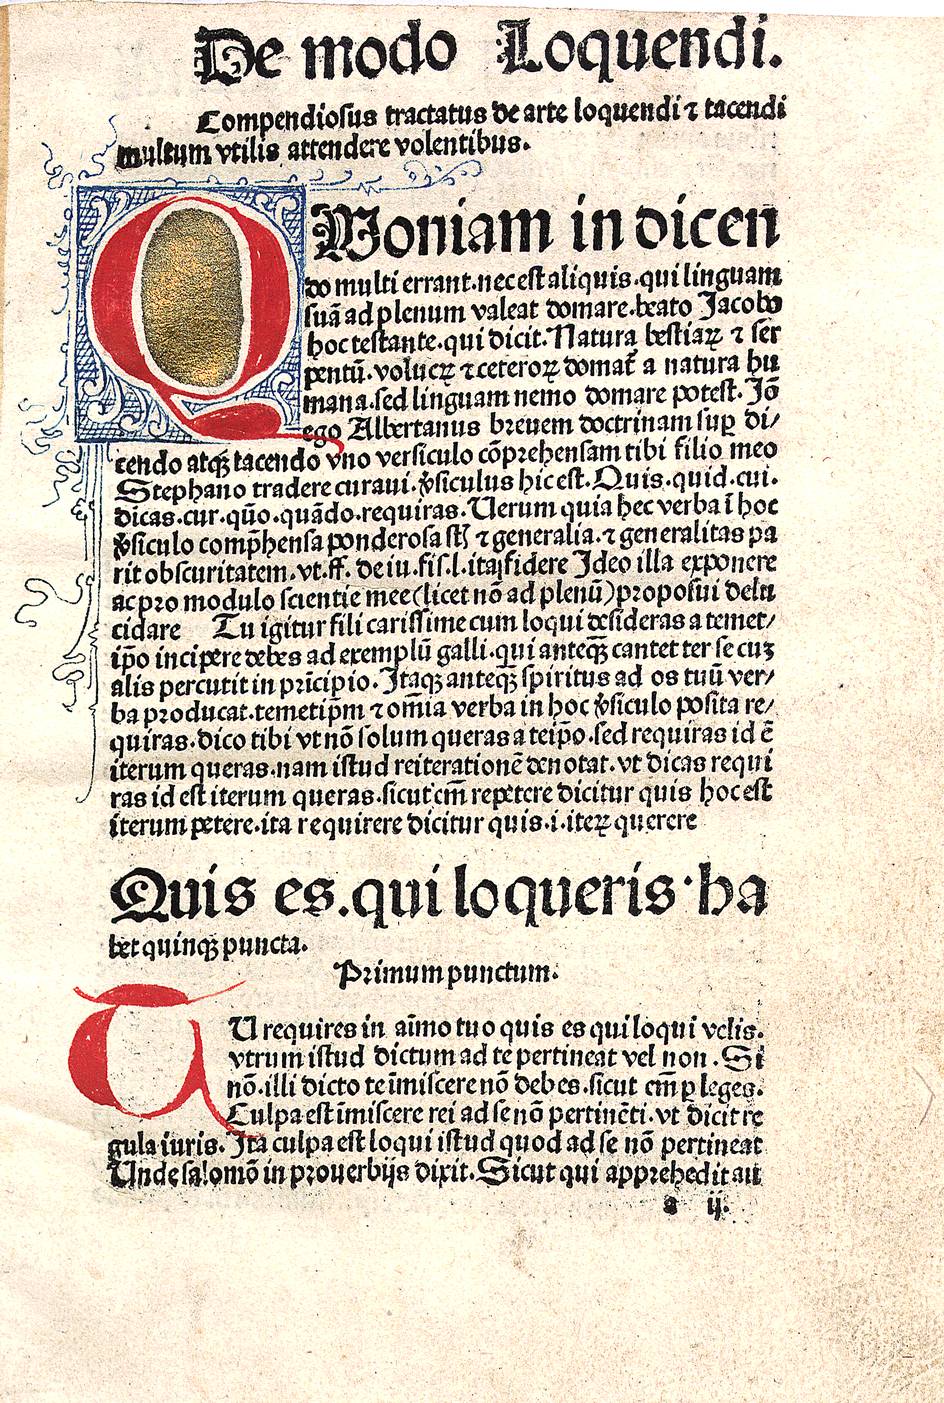 De modo Loquendi.
Compendiosus tractatus de arte loquendi ⁊ tacendi
multum vtilis attendere volentibus.
QUoniam in dicen
do multi errant. nec est aliquis. qui linguam
suā ad plenum valeat domare. beato Jacobo
hoc testante. qui dicit. Natura bestiaꝝ ⁊ ser
pentū. volucꝝ ⁊ ceteroꝝ domat᷑ a natura hu
mana. sed linguam nemo domare potest. Jō
ego Albertanus breuem doctrinam suꝑ di/
cendo atqꝫ tacendo vno versiculo cōprehensam tibi filio meo
Stephano tradere curaui. ꝟsiculus hic est. Quis. quid. cui.
dicas. cur. quō. quādo. requiras. Uerum quia hec verba ī hoc
ꝟsiculo comp̄hensa ponderosa st̄ ⁊ generalia. ⁊ generalitas pa
rit obscuritatem. vt. ff. de iu. fis. l. ita fidere Jdeo illa exponere
ac pro modulo scientie mee (licet nō ad plenū) proposui delu
cidare Tu igitur fili carissime cum loqui desideras a temet/
ip̄o incipere debes ad exemplū galli. qui anteqꝫ cantet ter se cuꝫ
alis percutit in prīcipio. Jtaqꝫ anteqꝫ spiritus ad os tuū ver/
ba producat. temetip̄m ⁊ om̄ia verba in hoc ꝟsiculo posita re/
quiras. dico tibi vt nō solum queras a teip̄o. sed requiras id ē
iterum queras. nam istud reiterationē denotat. vt dicas requi
ras id est iterum queras. sicut em̄ repetere dicitur quis hoc est
iterum petere. ita requirere dicitur quis .i. iteꝝ querere
Quis es. qui loqueris. ha
bet quinqꝫ puncta.
Primum punctum.
TU requires in aīmo tuo quis es qui loqui velis.
vtrum istud dictum ad te pertineat vel non. Si
nō. illi dicto te īmiscere nō debes. sicut em̄ ꝑ leges.
Culpa est īmiscere rei ad se nō pertinēti. vt dicit re
gula iuris. Jta culpa est loqui istud quod ad se nō pertineat
Unde salomō in prouerbijs dixit. Sicut qui apprehēdit au
a ij.